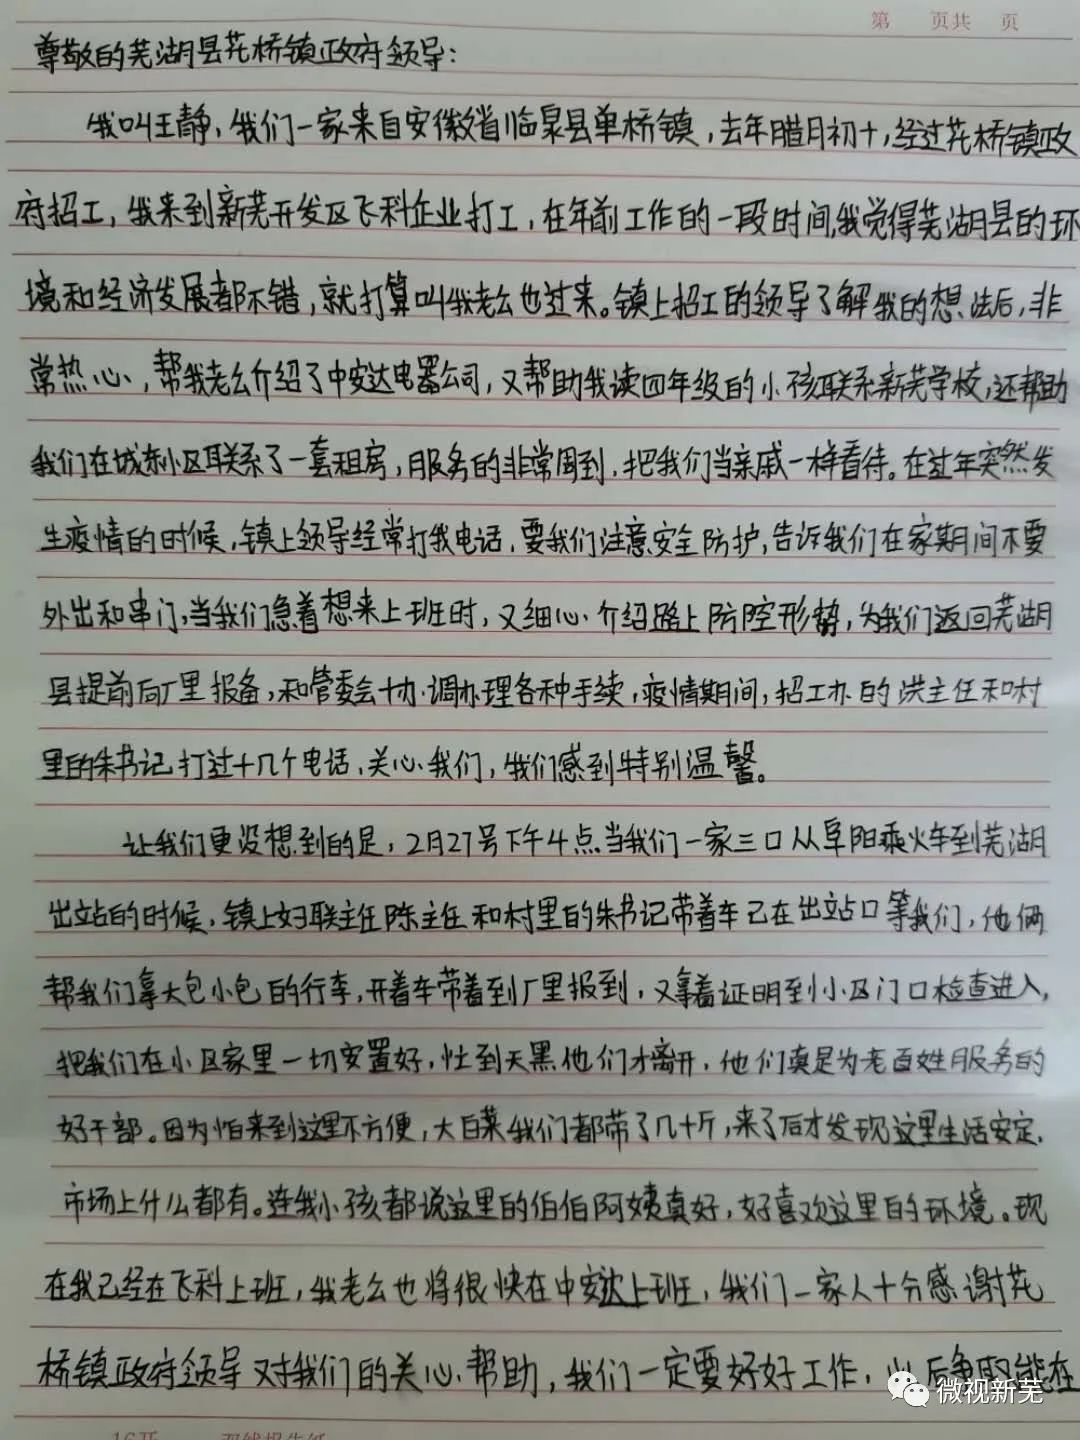 第 页共 页
尊敬的芜湖县花桥镇政府领导:
我叫王静,我们一家来自安徽省临泉县单桥镇,去年腊月初十,经过花桥镇政
府招工,我来到新芜开发区飞科企业打工,在年前工作的一段时间,我觉得芜湖县的环
境和经济发展都不错,就打算叫我老公也过来。镇上招工的领导了解我的想法后,非
常热心,帮我老公介绍了中安达电器公司,又帮助我读四年级的小孩联系新芜学校,还帮助
我们在城东小区联系了一套租房,服务的非常周到,把我们当亲戚一样看待。在过年突然发
生疫情的时候,镇上领导经常打我电话,要我们注意安全防护,告诉我们在家期间不要
外出和串门,当我们急着想来上班时,又细心介绍路上防控形势,为我们返回芜湖
县提前向厂里报备,和管委会协调办理各种手续,疫情期间,招工办的洪主任和村
里的朱书记打过十几个电话,关心我们,我们感到特别温馨。
让我们更没想到的是,2月27号下午4点当我们一家三口从阜阳乘火车到芜湖
出站的时候,镇上妇联主任陈主任和村里的朱书记带着车已在出站口等我们,他俩
帮我们拿大包小包的行李,开着车带着到厂里报到,又拿着证明到小区门口检查进入,
把我们在小区家里一切安置好,忙到天黑他们才离开,他们真是为老百姓服务的
好干部。因为怕来到这里不方便,大白菜我们都带了几十斤,来了后才发现这里生活安定,
市场上什么都有。连我小孩都说这里的伯伯阿姨真好,好喜欢这里的环境。现
在我已经在飞科上班,我老公也将很快在中安达上班,我们一家人十分感谢花
桥镇政府领导对我们的关心帮助,我们一定要好好工作,以后争取能在
微视新芜
16开 双线报告纸